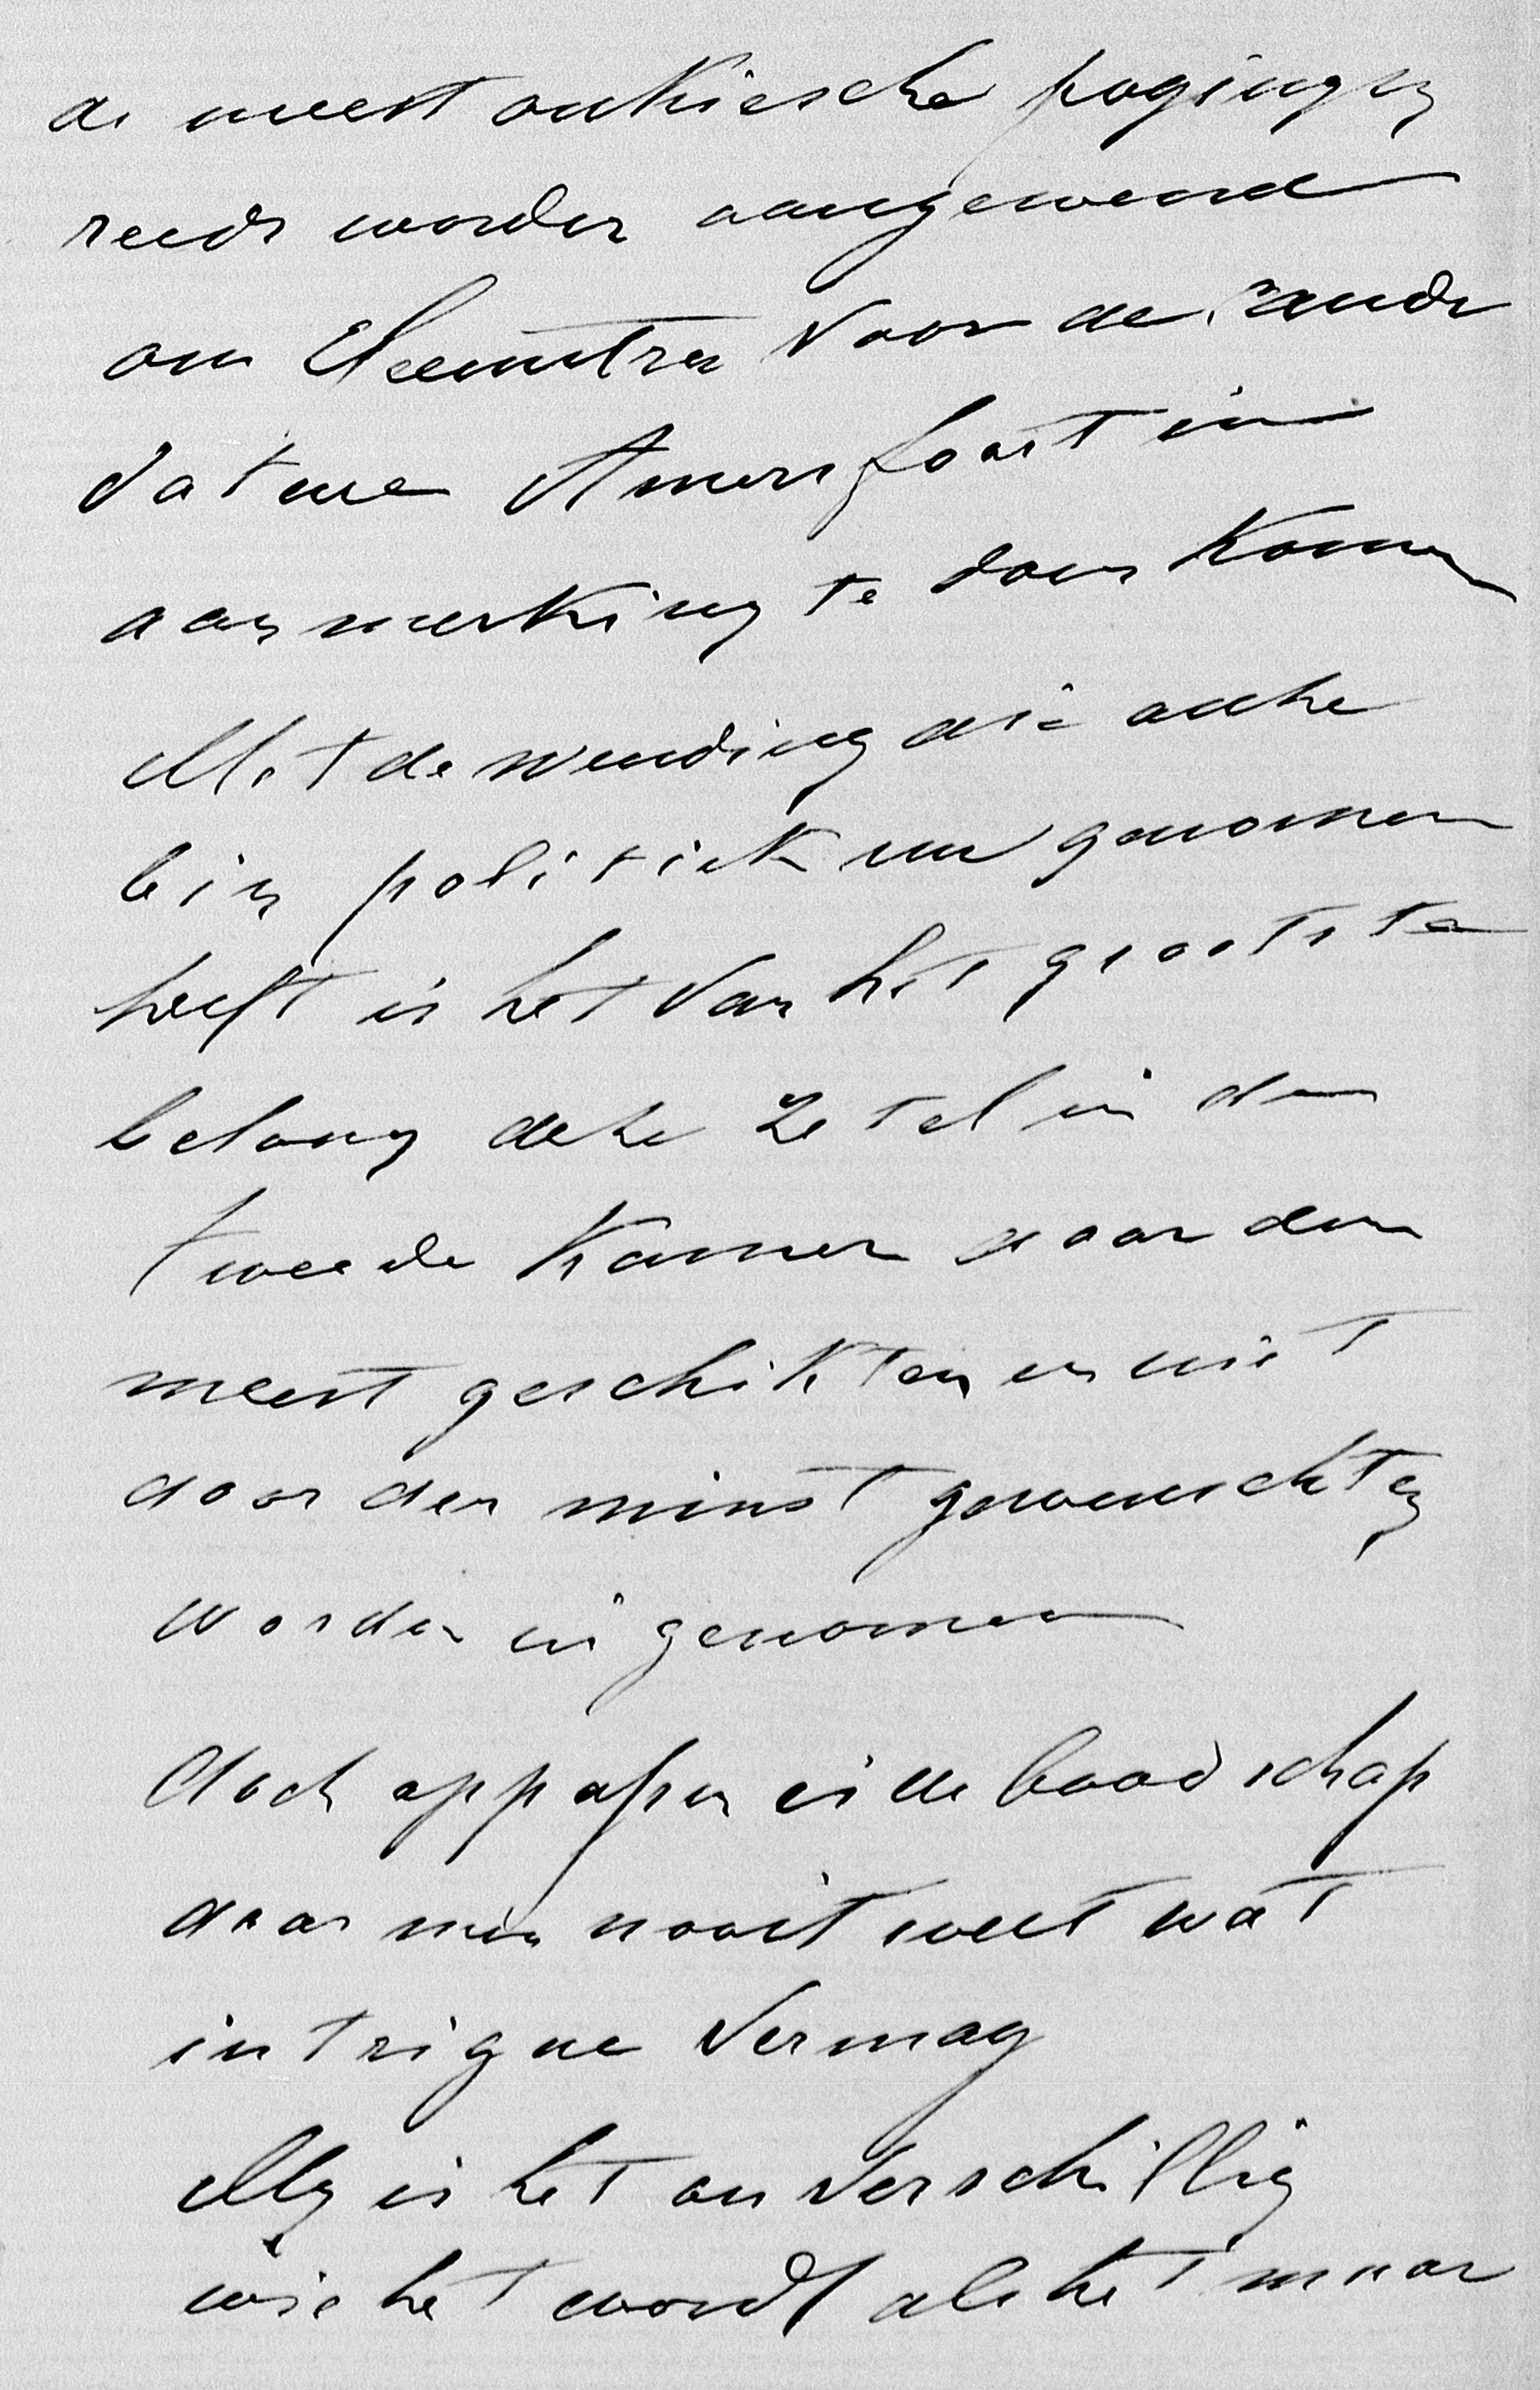 de meest onkiesche pogingen
reeds worden aangewend
om Heemstra voor de candi
datuur Amersfoort in
aanmerking te doen komen
Met de wending die onze
bin politiek nu genomen
heeft is het van het grootste
belang deze zetel in de
tweede Kamer door den
meest geschikten en niet
door den minst gewenschten
worden in genomen
Doch oppassen is de boodschap
daar men nooit weet wat
intrigue vermag
My is het onverschillig
wie het wordt als het maar